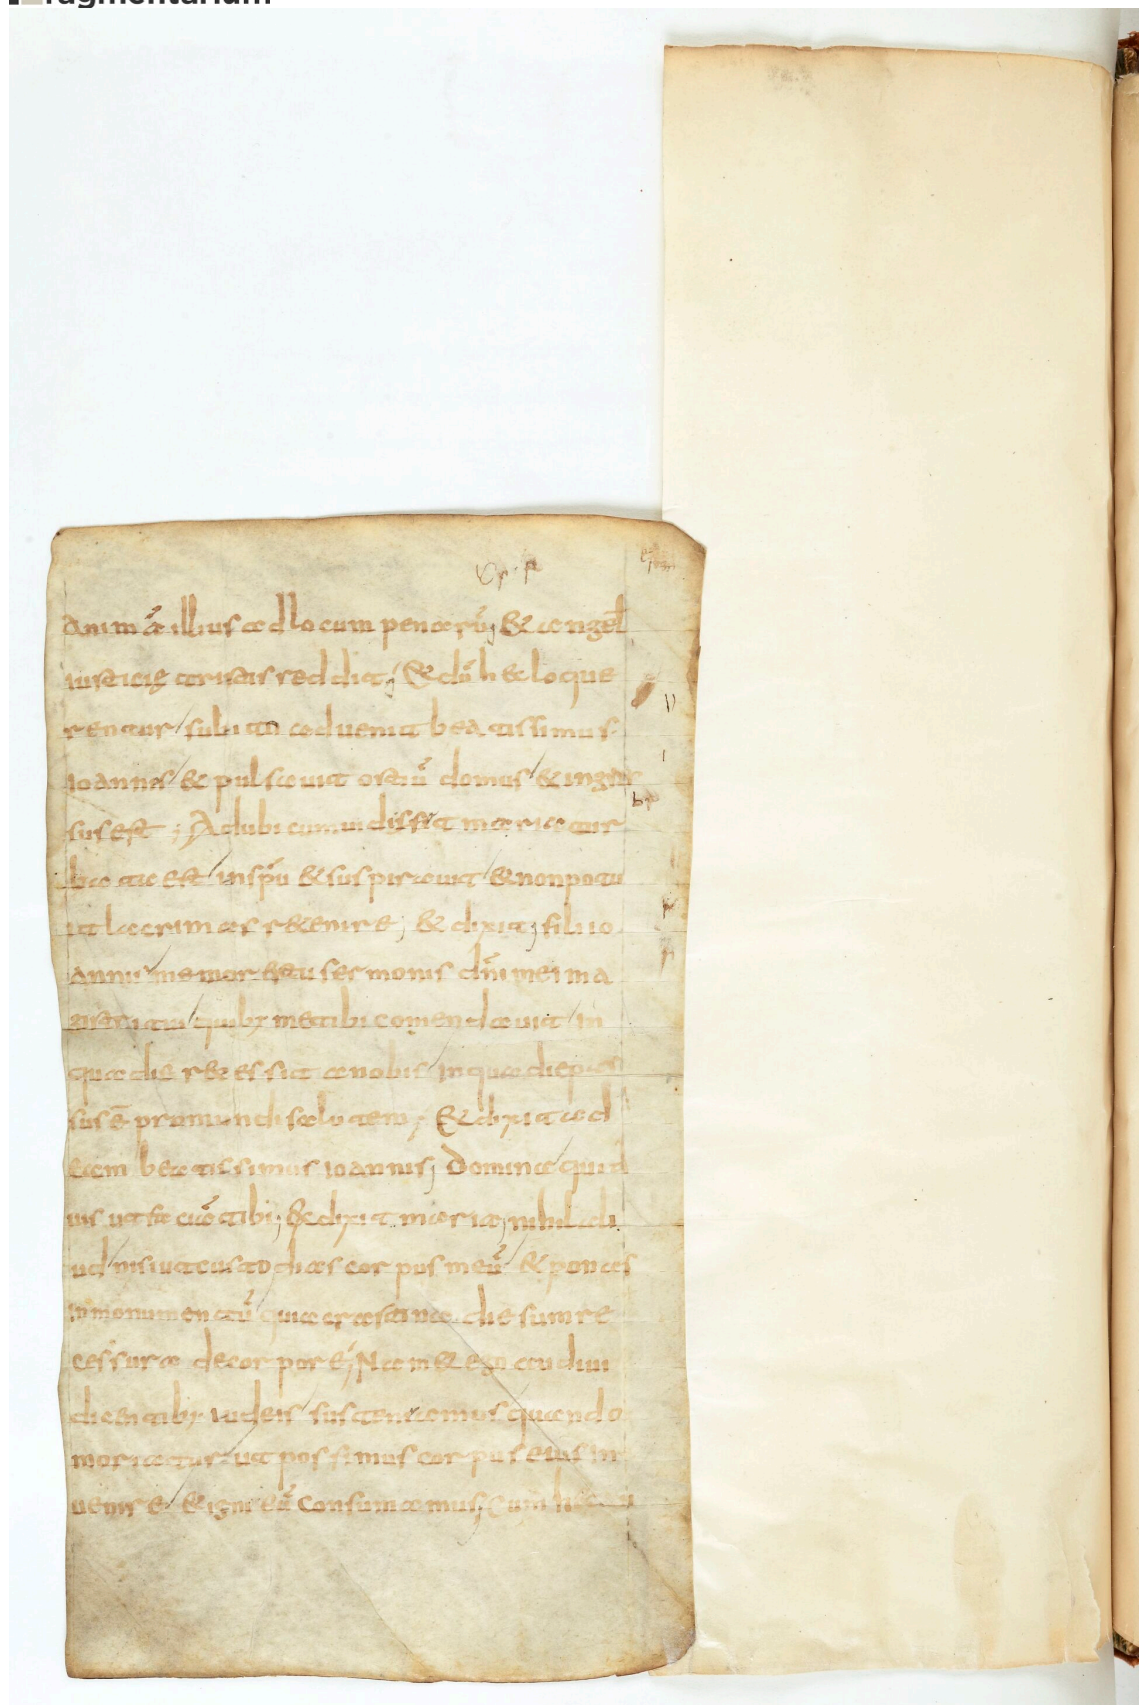 fragmentarium
animā illius ad locum penarū; & angel
iusticię tristis reddit; & dū hec loque
rentur / subito advenit beatissimus
ioannes / & pulsavit ostiū domus & ingres
sus est ; Ad ubi cum vidisset maria tur
bata est in spū & suspiravit & non potu
it lacrimas retenire; & dixit; fili io
annis memor estu sermonis dn̄i mei ma
gistri tui quibꝫ me tibi comendavit in
qua die recessit a nobis in qua die pas
sus ē pro mundi salutem; & dixit ad
eam beatissimus ioannis; Domina quid
vis ut faciā tibi; & dixit maria; nihil ali
ud nisi ut custodias corpus meū & ponas
in monumentū quia crastina die sum re
cessura de corpore; Nam & ego audivi
dicentibꝫ iudeis sustineamus quando
moriatur ut possimus corpus eius in
venire & igni eū consumamus; Cum